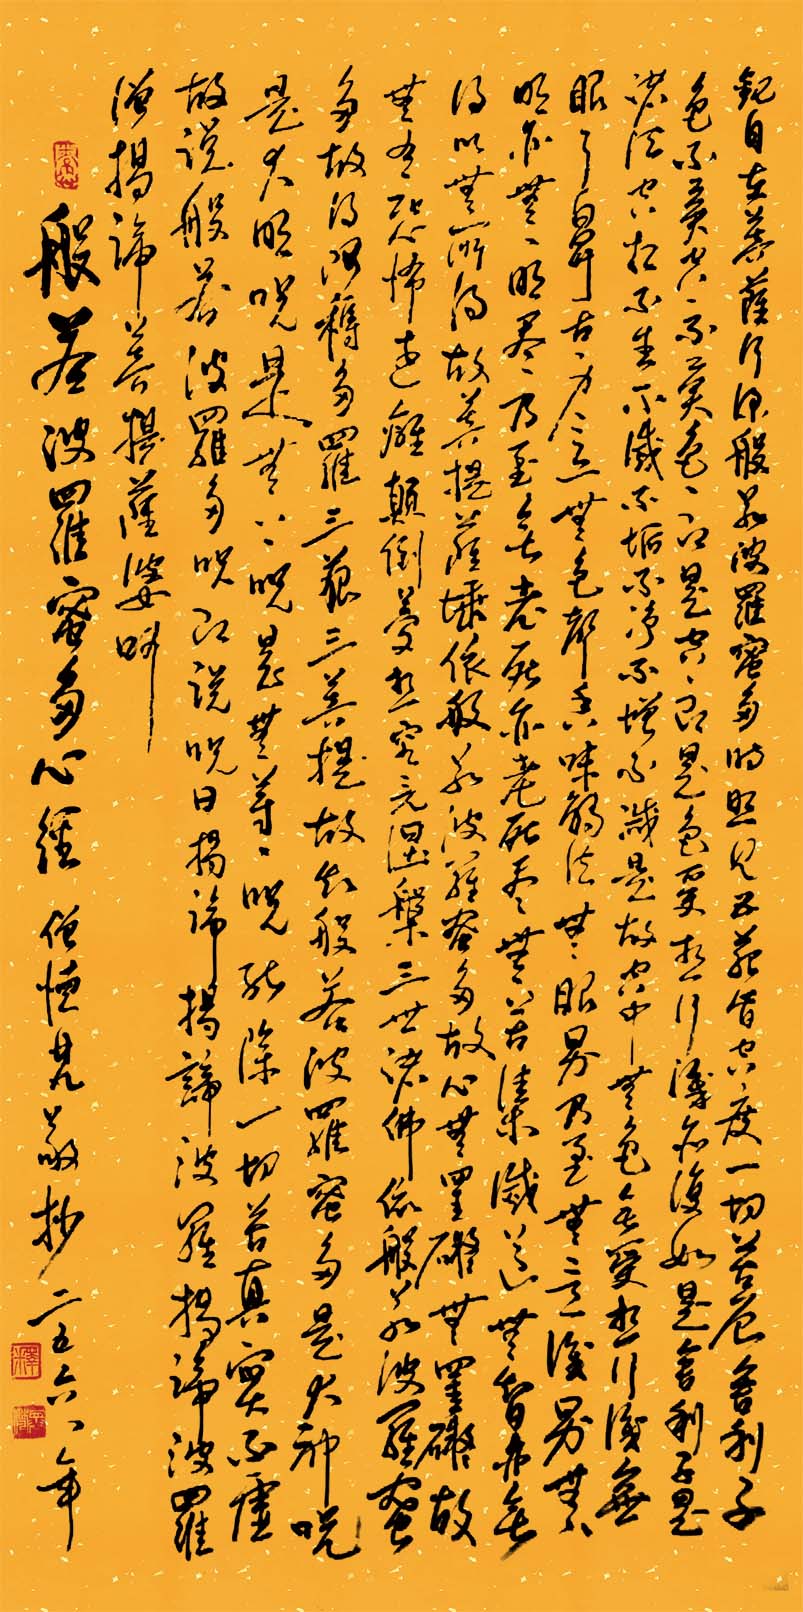 観自在菩薩行深般若波羅蜜多時照見五蘊皆空度一切苦厄舍利子
色不異空〻不異色〻即是空〻即是色受想行識亦復如是舍利子是
諸法空相不生不滅不垢不淨不增不減是故空中無色無受想行識無
眼耳鼻舌身意無色聲香味觸法無眼界乃至無意識界無〻
明亦無〻明盡乃至無老死亦老死盡無苦集滅道無智亦無
得以無所得故菩提薩埵依般若波羅蜜多故心無罣礙無罣礙故
無有恐怖遠離顛倒夢想究竟涅槃三世諸佛依般若波羅蜜
多故得阿耨多羅三藐三菩提故知般若波羅蜜多是大神咒
是大明咒是無上咒是無等〻咒能除一切苦真實不虛
故說般若波羅多咒即說咒曰揭諦揭諦波羅揭諦波羅
僧揭諦菩提薩婆訶
般若波羅蜜多心經 僧敬抄 二五六一年